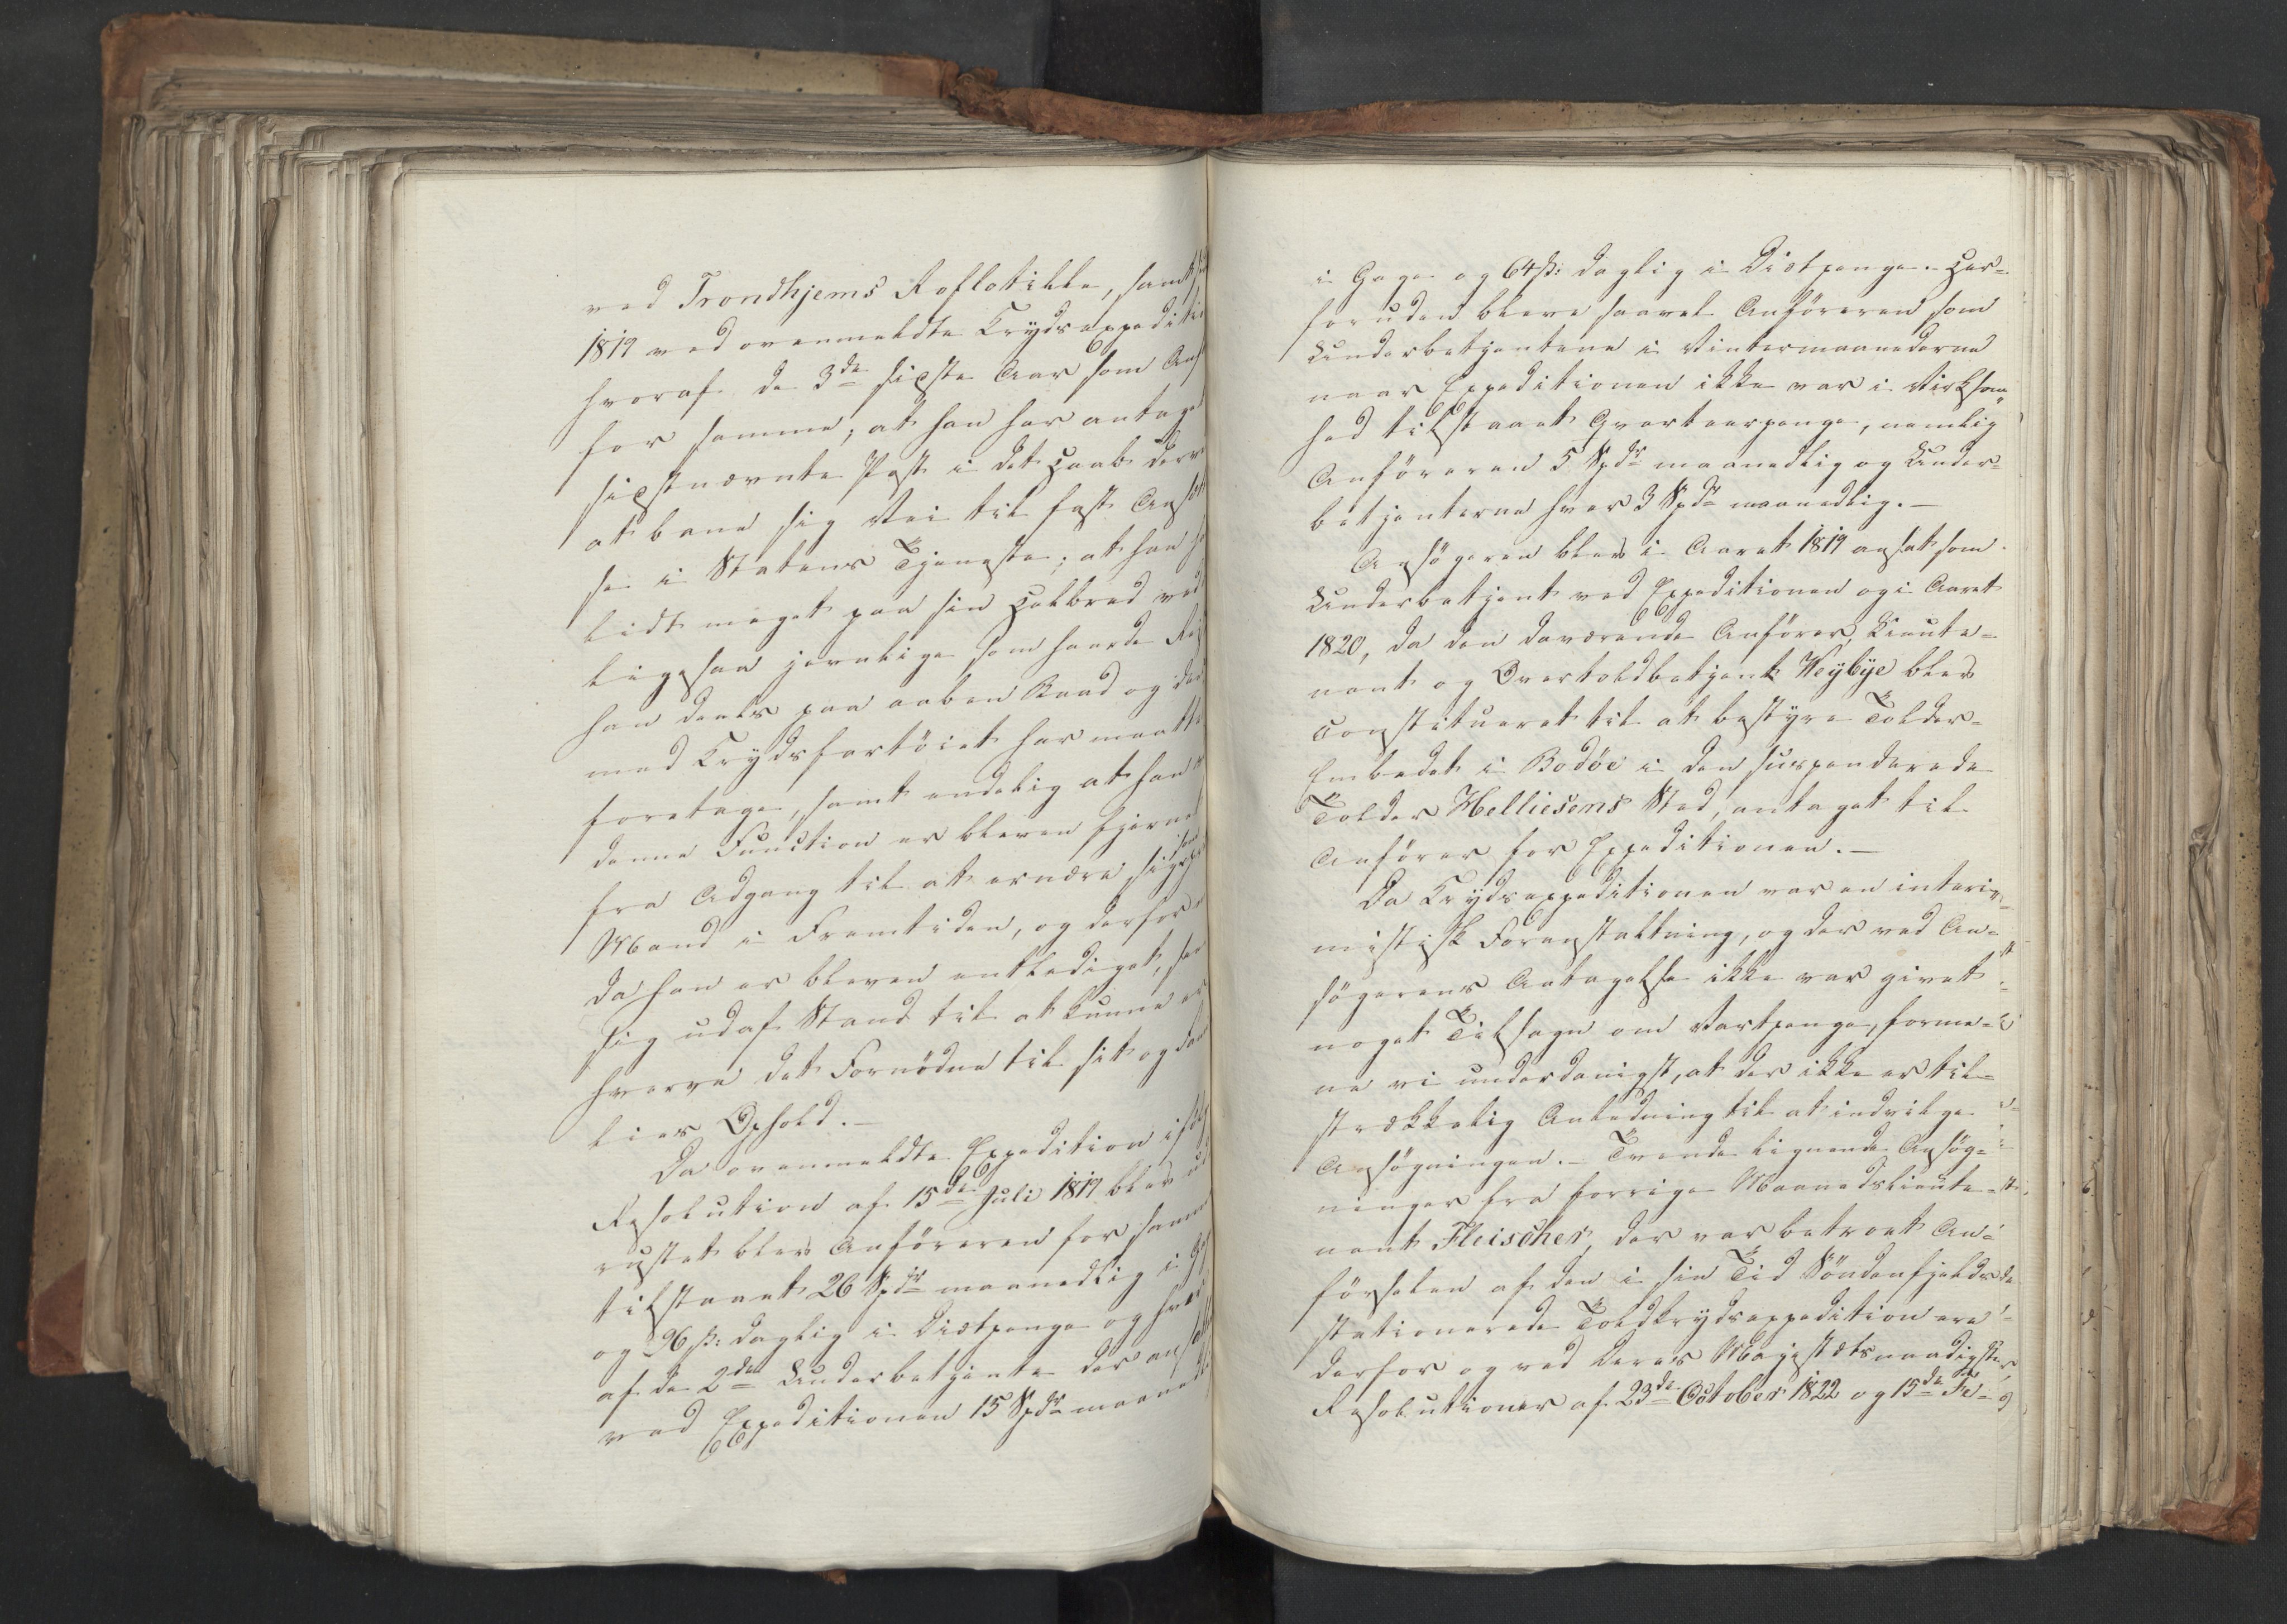 ved Trondhjems Roflotille, samt
1819 ved ovenmeldte Krydsexpediti
hvoraf de 3de sidste Aar som Anf
for samme; at han har antaget
sidstnævnte Post i det Haab derv
at bane sig Vei til fast Ansæt
se i Statens Tjeneste; at han ha
lidt meget paa sin Helbred ved
ligesaa jevnlige som haarde Rej
han deels paa aaben Baad og deel
med Krydsfartöiet har maatt
foretage, samt endelig at han
denne Function er bleven fjernet
fra Adgang til at ernære sig som
Mand i Fremtiden, og derfor
da han er bleven entlediget, seer
sig udaf Stand til at kunne er
hverve det Fornödne til sit og
lies Ophold. —
Da ovenmeldte Expedition ifölge
Resolution af 15de Juli 1819 blev ud
rustet blev Anföreren for samme
tilstaaet 26 Spdr maanedlig i
og 96 ß: daglig i Diætpenge og hver
af de 2de Underbetjente der ansatt
ved Expeditionen 15 Spdr maaned
i Gage og 64 ß: daglig i Diætpenge. Her=
foruden bleve saavel Anföreren som
Underbetjentene i Vintermaanederne
naar Expeditionen ikke var i Virksom=
hed tilstaaet Qvarteerpenge, nemlig
Anföreren 5 Spdr maanedlig og Under=
betjenterne hver 3 Spdr maanedlig. —
Ansögeren blev i Aaret 1819 ansat som
Underbetjent ved Expeditionen og i Aaret
1820, da den daværende Anförer, Lieute=
nant og Overtoldbetjent Weybye blev
constitueret til at bestyre Tolder=
Embedet i Bodöe i den suspenderede
Tolder Helliesens Sted, antaget til
Anförer for Expeditionen. —
Da Krydsexpeditionen var en interi=
mistisk Foranstaltning, og der ved An=
sögerens Antagelse ikke var givet
noget Tilsagn om Vartpenge, forme=
ne vi underdanigst, at der ikke er til=
strækkelig Anledning til at indvilge
Ansögningen. — Tvende lignende Ansög=
ninger fra forrige Maanedslieute=
nant Fleischer, der var betroet An=
förselen af den i sin Tid Söndenfjelds
stationerede Toldkrydsexpedition ere
derfor og ved Deres Majestæts naadigste
Resolutioner af 23de October 1822 og 15de Fe=